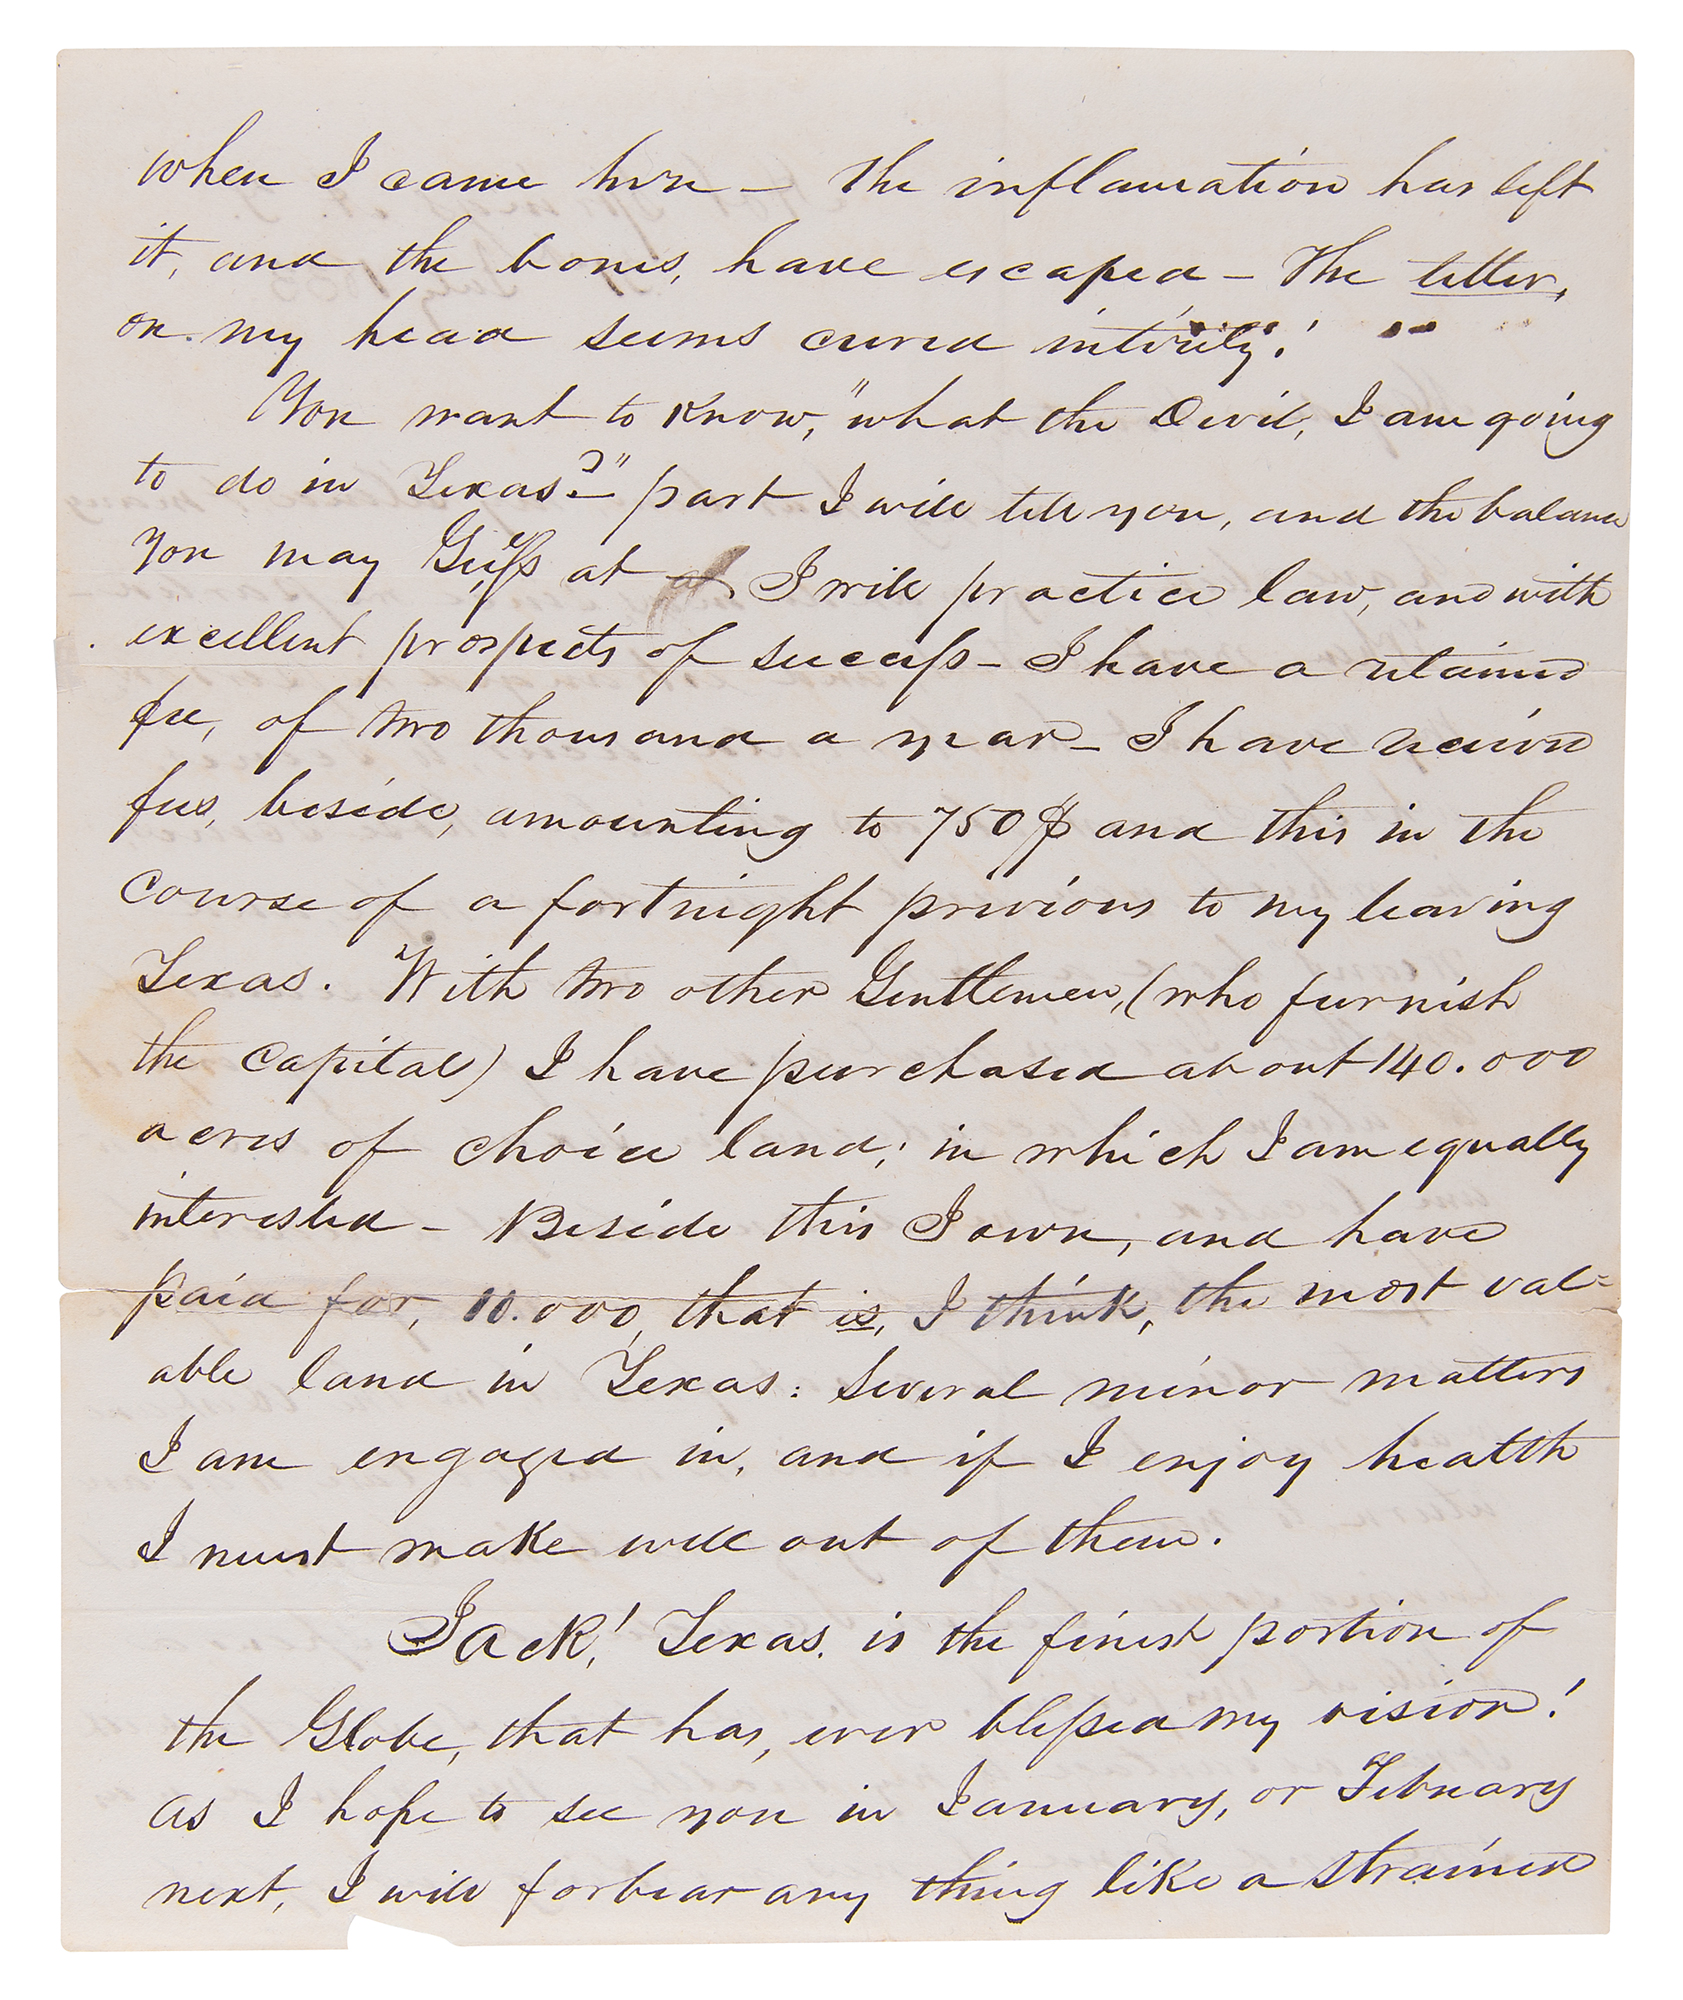 when I came here – The inflamation has left
it, and the bones, have escaped – The tetter,
on my head seems cured intirely!
You want to know, "what the Devil, I am going
to do in Texas?" part I will tell you, and the balance
you may Guess at I will practice law, and with
excellent prospects of success – I have a retained
fee, of two thousand a year – I have recieved
fees, beside, amounting to 750$ and this in the
course of a fortnight previous to my leaving
Texas. With two other Gentlemen, (who furnish
the Capital) I have purchased about 140.000
acres of choice land; in which I am equally
interested – Beside this I own, and have
paid for, 10.000, that is, I think, the most val=
able land in Texas: Several minor matters
I am engaged in, and if I enjoy health
I must make well out of them.
Jack! Texas, is the finest portion of
the Globe, that has, ever blessed my vision!
As I hope to see you in January, or February
next, I will forbear any thing like a strained